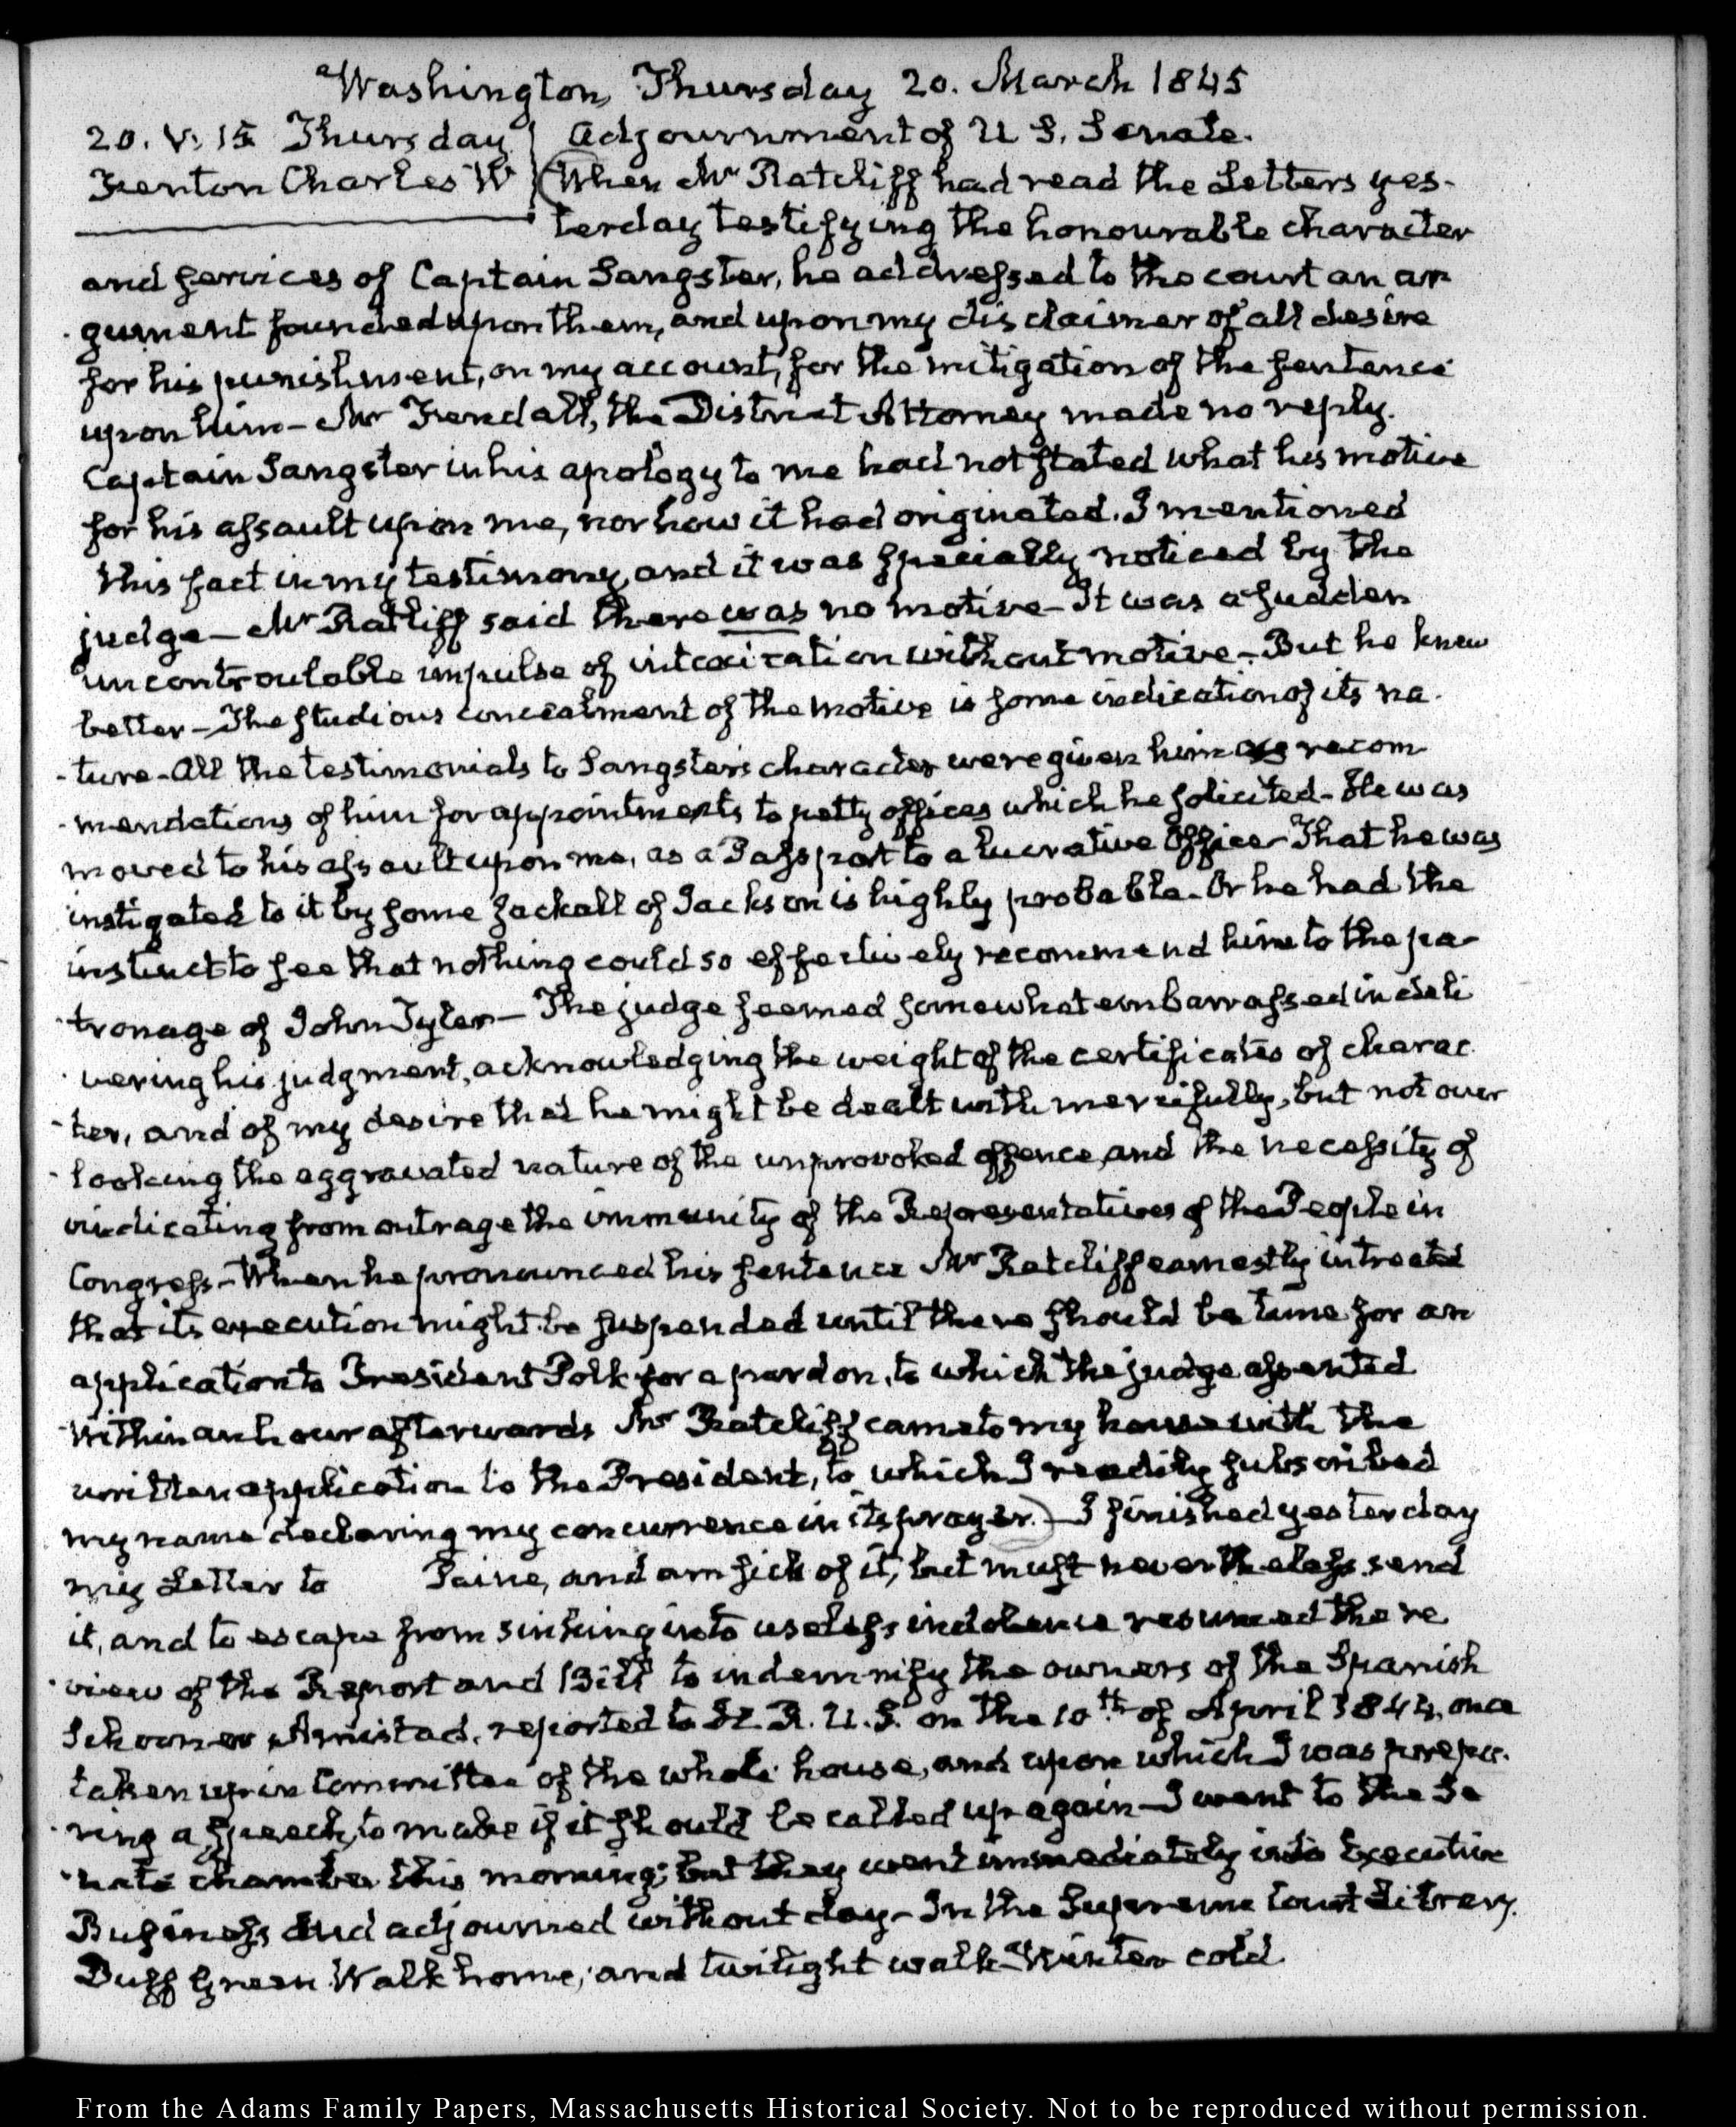 Washington, Thursday 20. March 1845
20. V. 15 Thursday
Fenton Charles W
Adjournment of U S. Senate.
When Mr Ratcliff had read the Letters yes-
terday testifying the honourable character
and services of Captain Sangster, he addressed to the court an ar
gument founded upon them, and upon my disclaimer of all desire
for his punishment, on my account, for the mitigation of the sentence
upon him - Mr Fendall, the District Attorney made no reply.
Captain Sangster in his apology to me had not stated what his motive
for his assault upon me, nor how it had originated. I mentioned
this fact in my testimony, and it was specially noticed by the
judge - Mr Ratcliff said there was no motive - It was a sudden
uncontroulable impulse of intoxication without motive - But he knew
better - The studious concealment of the motive is some indication of its na-
-ture - All the testimonials to Sangster's character were given him as recom
-mendations of him for appointments to petty offices which he solicited - He was
moved to his assault upon me, as a Passport to a lucrative Office - That he was
instigated to it by some Jackall of Jackson is highly probable - Or he had the
instinct to see that nothing could so effectively recommend him to the pa-
-tronage of John Tyler - The judge seemed somewhat embarrassed in deli
-vering his judgment, acknowledging the weight of the certificates of charac
-ter, and of my desire that he might be dealt with mercifully, but not over
-looking the aggravated nature of the unprovoked offence, and the necessity of
vindicating from outrage the immunity of the Representatives of the People in
Congress - When he pronounced his sentence Mr Ratcliff earnestly intreated
that its execution might be suspended until there should be time for an
application to President Polk for a pardon, to which the judge assented
Within an hour afterwards Mr Ratcliff came to my house with the
written application to the President, to which I readily subscribed
my name declaring my concurrence in its prayer.) - I finished yesterday
my Letter to Paine, and am sick of it, but must nevertheless send
it, and to escape from sinking into useless indolence resumed the re
-view of the Report and Bill to indemnify the owners of the Spanish
Schooner Amistad, reported to H. R. U. S. on the 10th of April 1844, once
taken up in Committee of the whole house, and upon which I was prepa-
-ring a speech, to make if it should be called up again - I went to the Se
-nate chamber this morning; but they went immediately into Executive
Business and adjourned without day - In the Supreme Court Library.
Duff Green. Walk home, and twilight walk - Winter cold
From the Adams Family Papers, Massachusetts Historical Society. Not to be reproduced without permission.